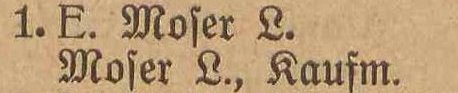 1. E. Moser L.
Moser L., Kaufm.